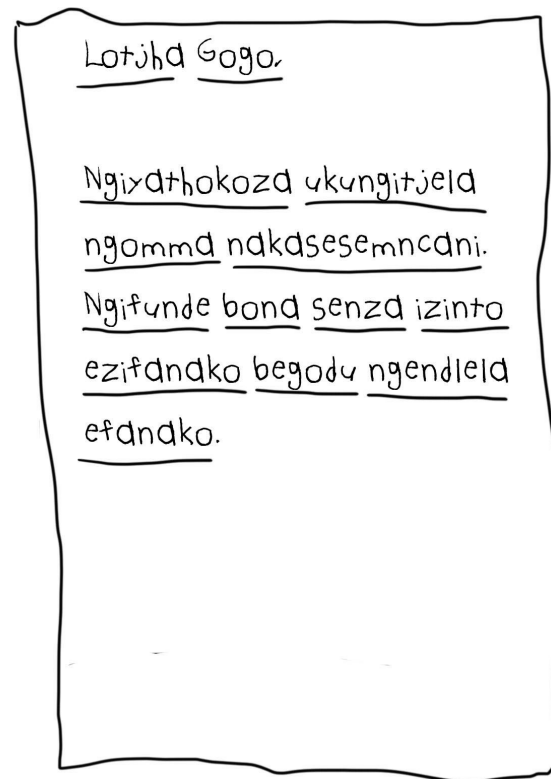 Lotjha Gogo.
Ngiyathokoza ukungitjela
ngomma nakasesemncani.
Ngifunde bona senza izinto
ezifanako begodu ngendlela
efanako.